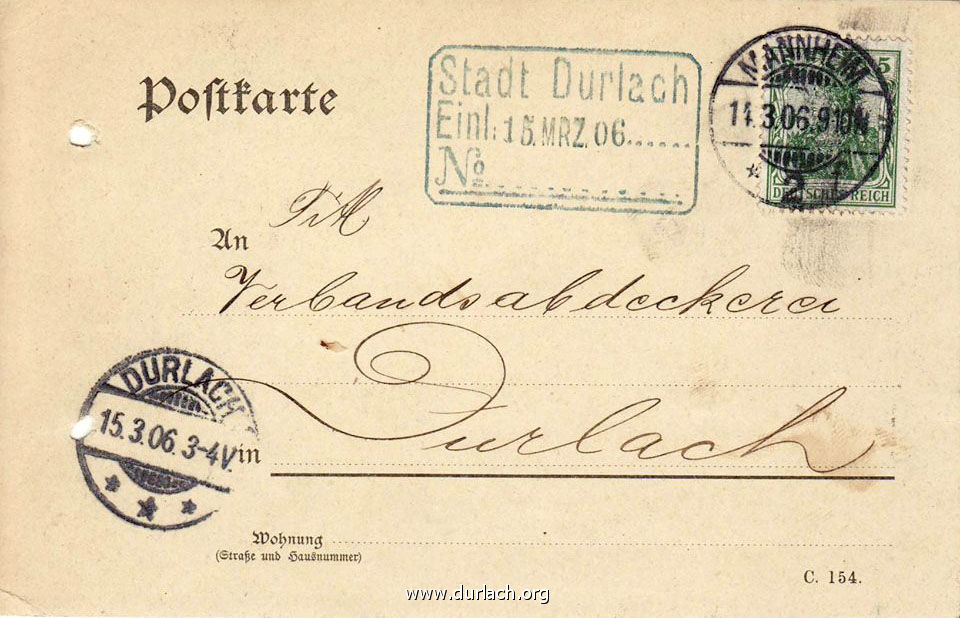 Postkarte
Stadt Durlach
Einl: 15. MRZ. 06.......
No
MANNHEIM
14.3.06.9-10N
* 2
5
DEUTSCHES REICH
An
Verbandsabdeckerei
DURLACH
15.3.06.3-4V.
in Durlach
Wohnung
(Straße und Hausnummer)
C. 154.
www.durlach.org